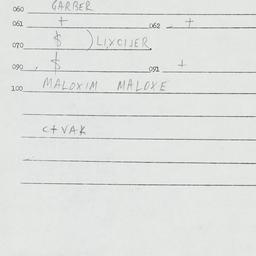 060 GARBER
061 + 062 +
070 $ ) LIXCIJER
090 $ 091 +
100 MALOXIM MALOXE
C+VAK